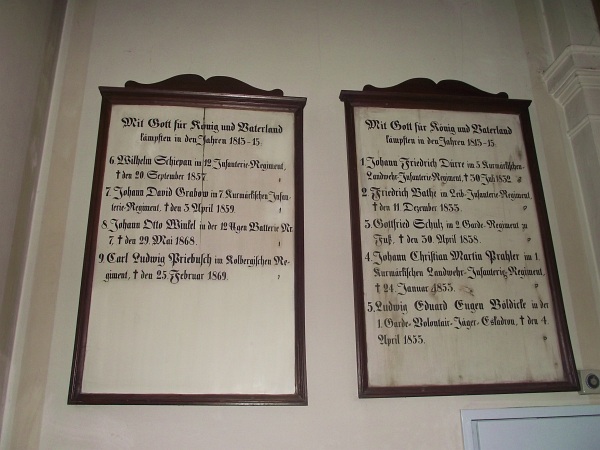 Mit Gott für König und Vaterland
kämpften in den Jahren 1813-15:
6 Wilhelm Schiepan im 12 Infanterie-Regiment,
† den 20 September 1857
7 Johann David Grabow im 7 Kurmärkischen Infan-
terie-Regiment, † den 3 April 1859
8 Johann Otto Winkel in der 12 Batterie Nr.
7, † den 29. Mai 1868.
9 Carl Ludwig Priebusch im Kolbergischen Re-
giment, † den 25. Februar 1869.
Mit Gott für König und Vaterland
kämpften in den Jahren 1813-15.
1 Johann Friedrich Dürre im 3 Kurmärkischen
Landwehr-Infanterie-Regiment, † 30 Juli 1832.
2 Friedrich Bathe im Leib-Infanterie-Regiment,
† den 11 Dezember 1833.
3. Gottfried Schulz im 2 Garde-Regiment zu
Fuß, † den 30. April 1838.
4. Johann Christian Martin Prahler im 1.
Kurmärkischen Landwehr-Infanterie-Regiment,
† 24. Januar 1853.
5. Ludwig Eduard Eugen Boldicke in der
1. Garde-Volontair-Jäger-Eskadron, † den 4
April 1853.